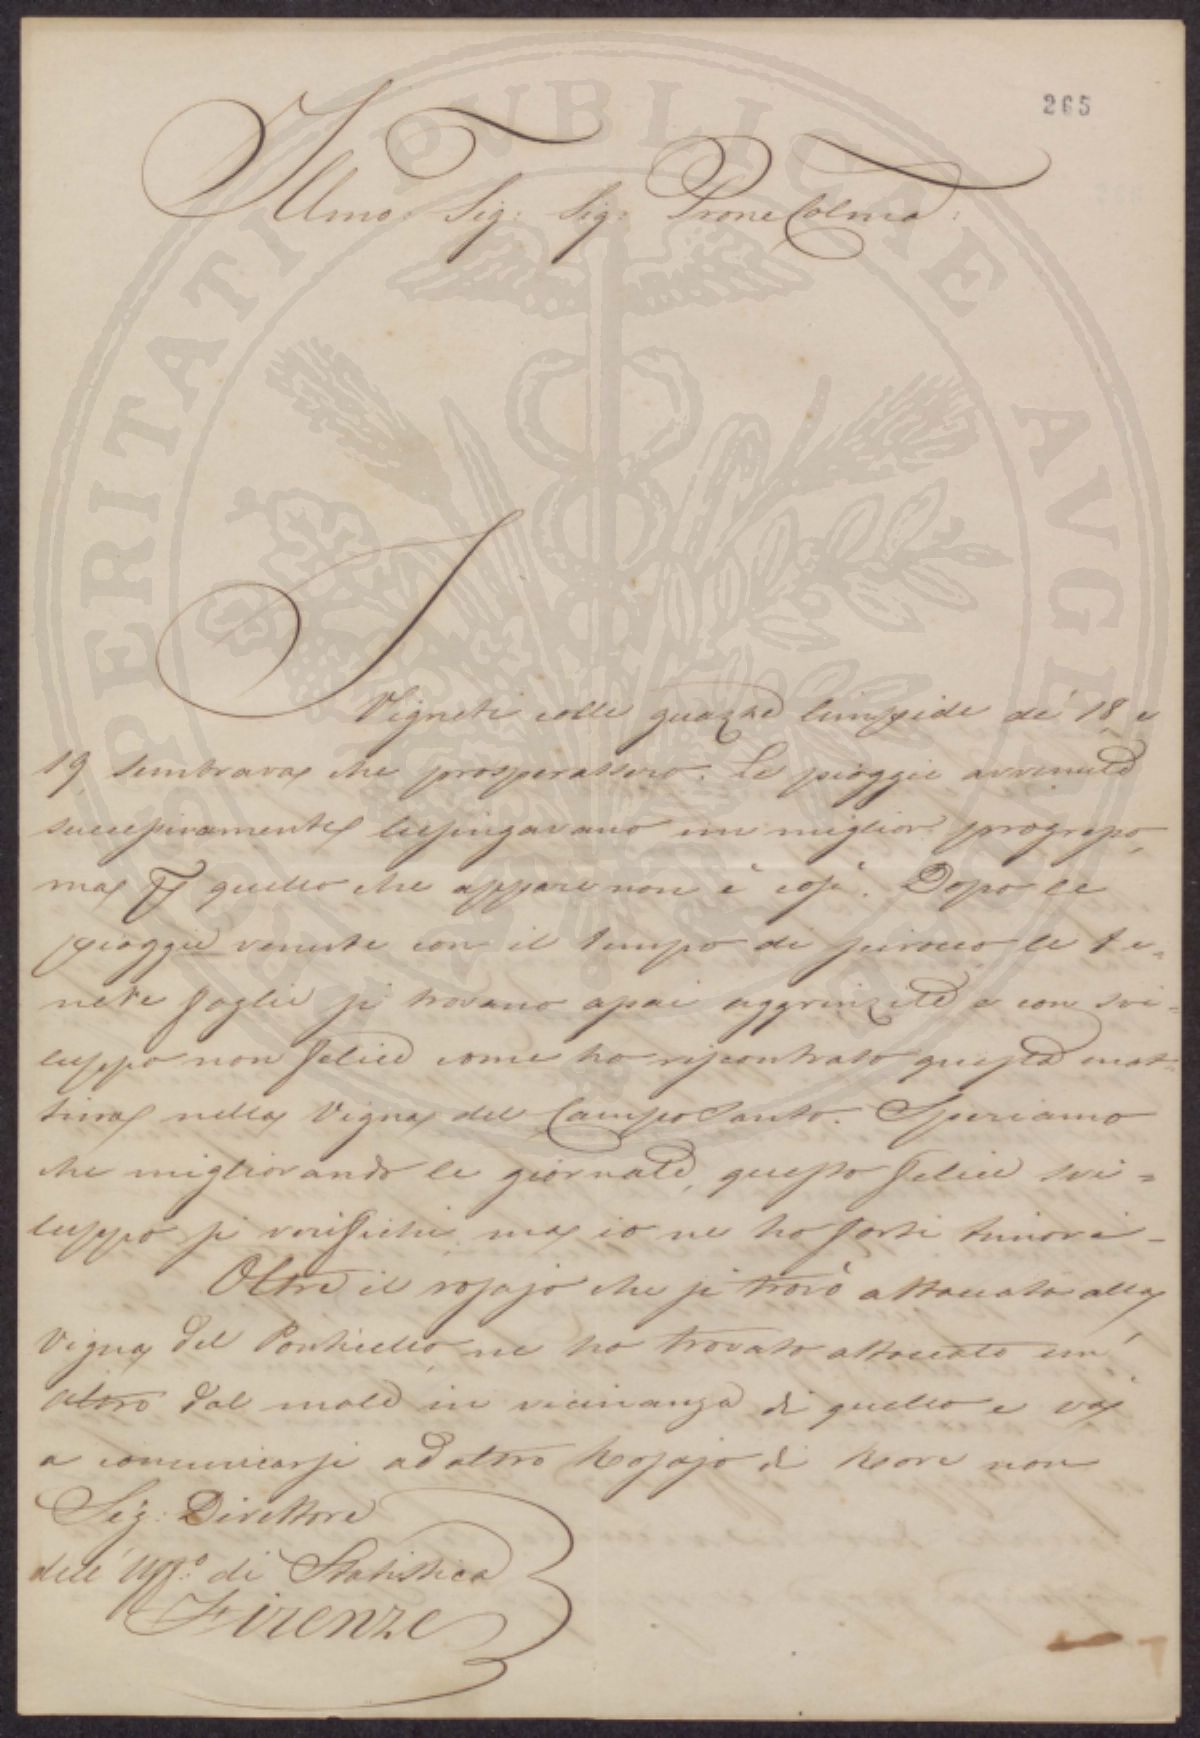 265
Illmo: Sig: Sig: Prone Colmo:
I
Vigneti colle guazze limpide de' 18 e
19 sembrava che prosperassero. Le pioggie avvenute
successivamente lusingavano un miglior progresso,
ma quello che appare non è così. Dopo le
pioggie venute con il tempo di scirocco le te=
nere foglie si trovano assai aggrinzite e con svi=
luppo non felice come ho riscontrato questa mat=
tina nella Vigna del CampoSanto. Speriamo
che migliorando le giornate, questo felice svi=
luppo si verifichi, ma io ne ho forti timori -
Oltre il rosajo che si trovò attaccato alla
Vigna del Ponticello, ne ho trovato attaccato un'
altro dal male in vicinanza di quello e và
a comunicarsi ad altro Rosajo di Rore non
Sig: Direttore
dell' Uff:o di Statistica
Firenze
PERITATI PUBLICAE AUGE